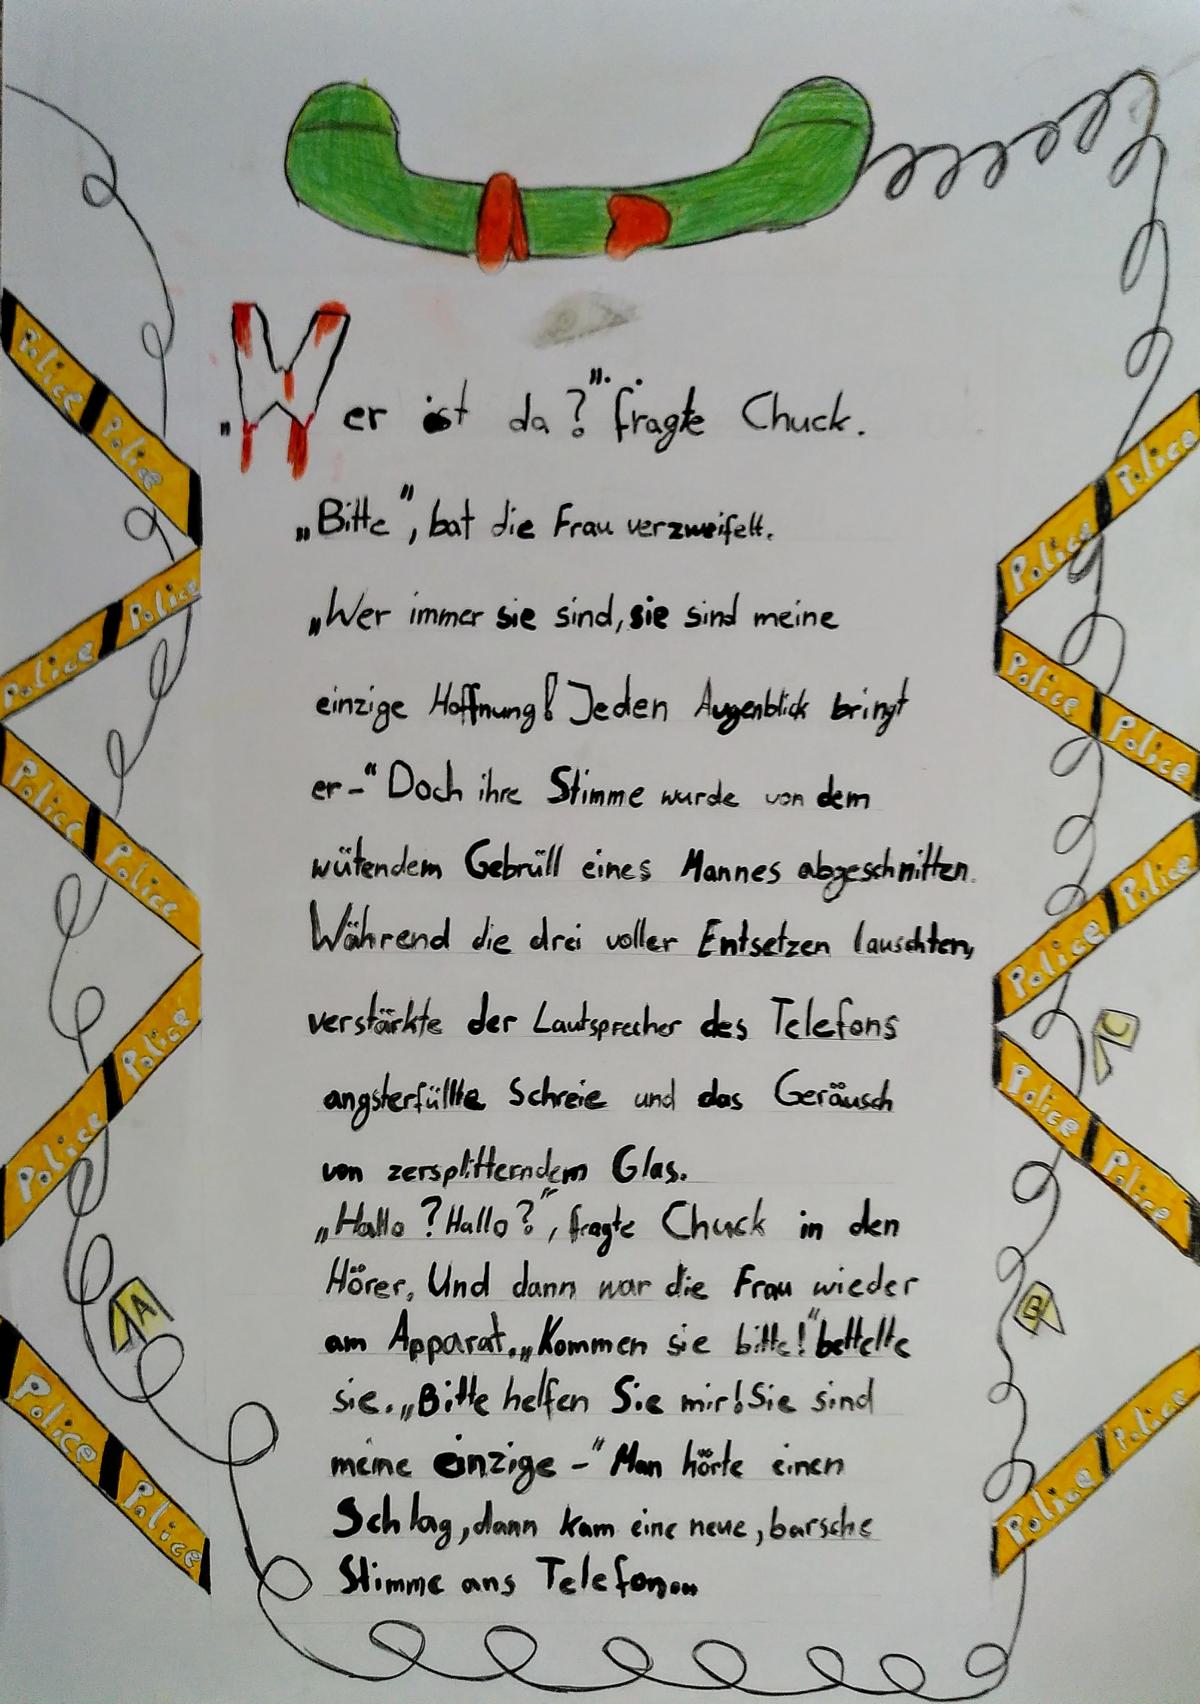 „Wer ist da?" fragte Chuck.
„Bitte", bat die Frau verzweifelt.
„Wer immer sie sind, sie sind meine
einzige Hoffnung! Jeden Augenblick bringt
er-" Doch ihre Stimme wurde von dem
wütendem Gebrüll eines Mannes abgeschnitten.
Während die drei voller Entsetzen lauschten,
verstärkte der Lautsprecher des Telefons
angsterfüllte Schreie und das Geräusch
von zersplitterndem Glas.
„Hallo? Hallo?", fragte Chuck in den
Hörer. Und dann war die Frau wieder
am Apparat. „Kommen sie bitte!" bettelte
sie. „Bitte helfen Sie mir! Sie sind
meine einzige -" Man hörte einen
Schlag, dann kam eine neue, barsche
Stimme ans Telefon...
Police Police
Police Police
Police Police
Police Police
Police Police
A
Police Police
Police Police
Police Police
Police Police
Police Police
C
B